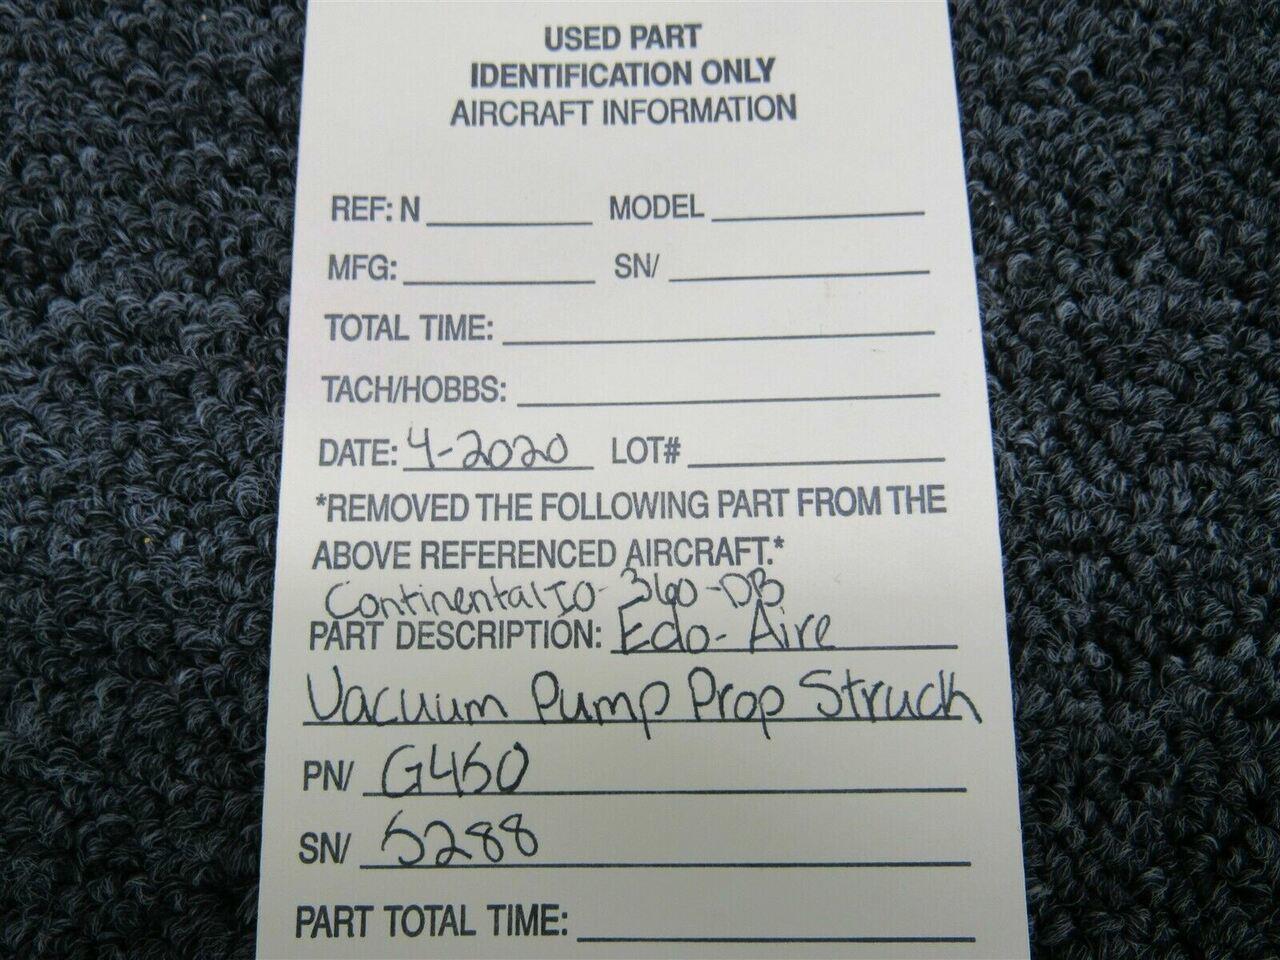 USED PART
IDENTIFICATION ONLY
AIRCRAFT INFORMATION
REF: N MODEL
MFG: SN/
TOTAL TIME:
TACH/HOBBS:
DATE: 4-2020 LOT#
*REMOVED THE FOLLOWING PART FROM THE
ABOVE REFERENCED AIRCRAFT.*
Continental IO-360-DB
PART DESCRIPTION: Edo-Aire
Vacuum Pump Prop Struck
PN/ G450
SN/ 5288
PART TOTAL TIME: